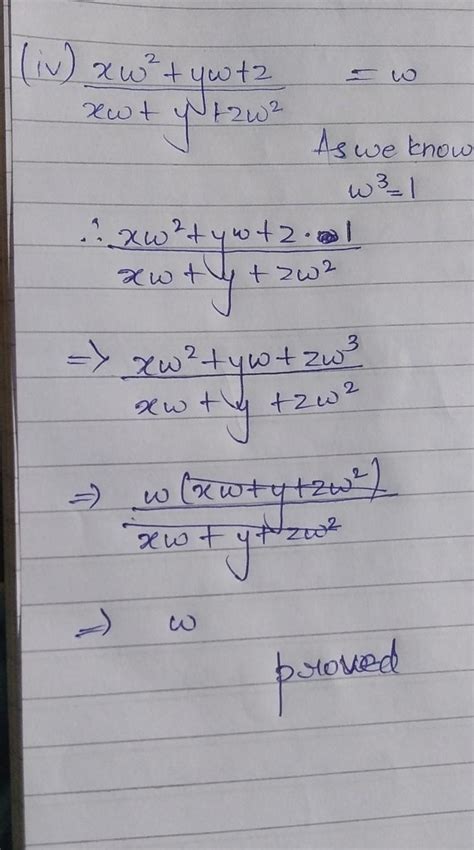 (iv) xω²+yω+z / xω+y+zω² = ω
As we know
ω³=1
∴ xω²+yω+z·1 / xω+y+zω²
=> xω²+yω+zω³ / xω+y+zω²
=> ω(xω+y+zω²) / xω+y+zω²
=> ω
proved